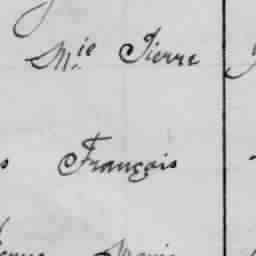 Mie Pierre
François
Marie